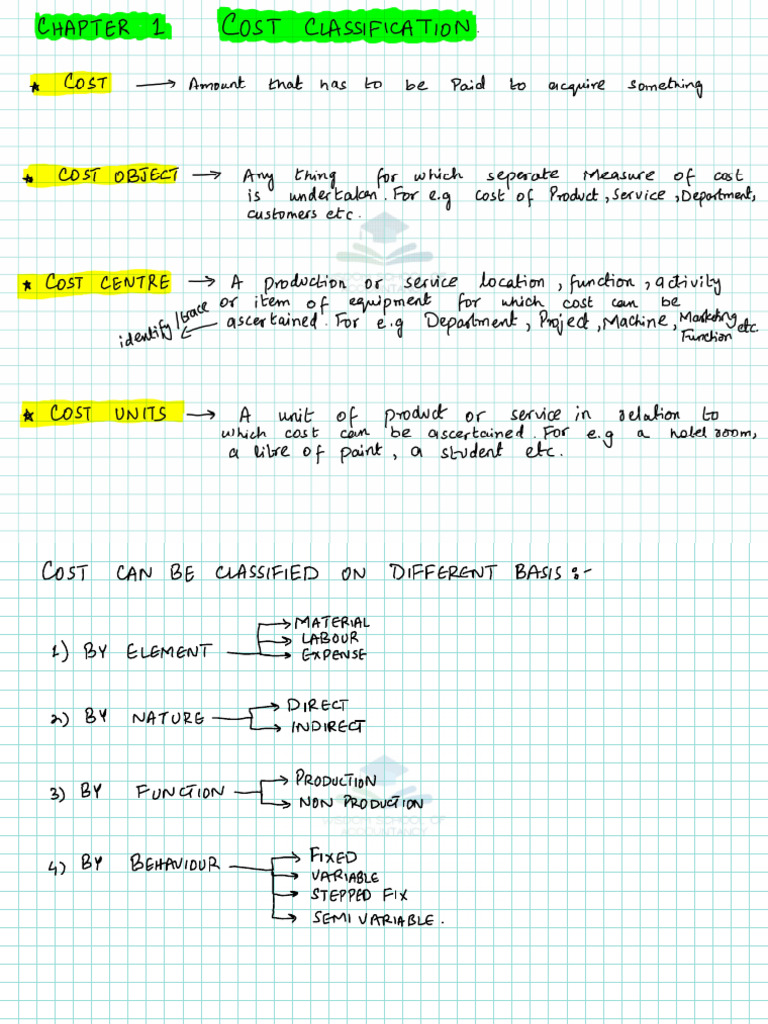 CHAPTER 1 COST CLASSIFICATION.
★ COST → Amount that has to be Paid to acquire something
★ COST OBJECT → Any thing for which seperate Measure of cost
is undertaken. For e.g cost of Product, Service, Department,
customers etc.
★ COST CENTRE → A production or service location, function, activity
or item of equipment for which cost can be
identify/trace ascertained. For e.g Department, Project, Machine, Marketing Function etc.
★ COST UNITS → A unit of product or service in relation to
which cost can be ascertained. For e.g a hotel room,
a litre of paint, a student etc.
COST CAN BE CLASSIFIED ON DIFFERENT BASIS:-
1) BY ELEMENT → MATERIAL
→ LABOUR
→ EXPENSE
2) BY NATURE → DIRECT
→ INDIRECT
3) BY FUNCTION → PRODUCTION
→ NON PRODUCTION
SCHOOL OF
ACCOUNTANCY
4) BY BEHAVIOUR → FIXED
→ VARIABLE
→ STEPPED FIX
→ SEMI VARIABLE.